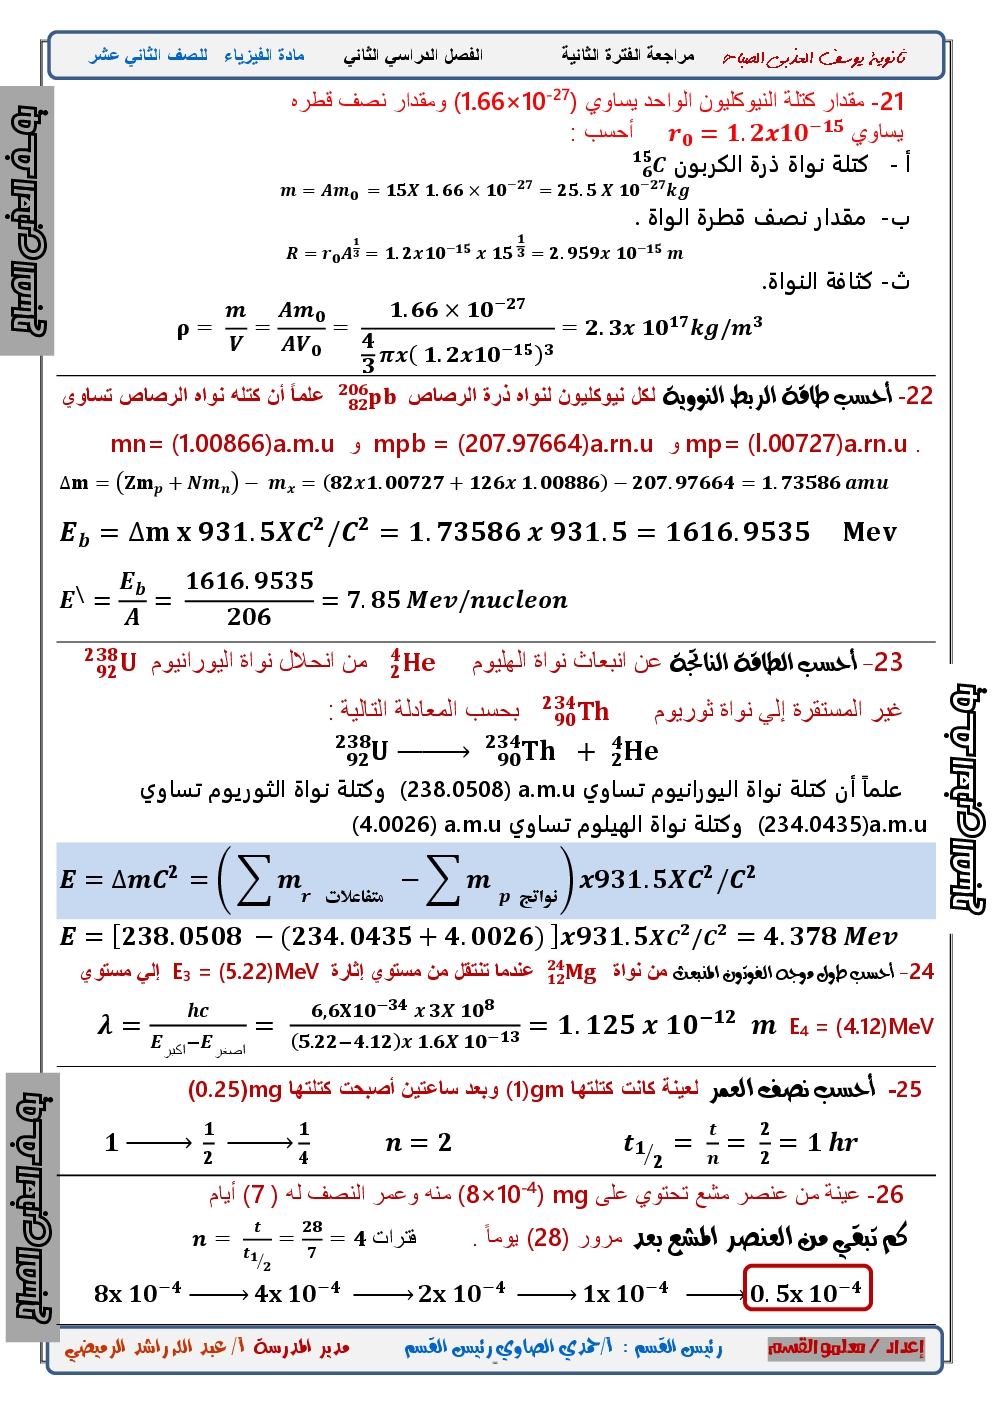 ثانوية يوسف العذبي الصباح مراجعة الفترة الثانية الفصل الدراسي الثاني مادة الفيزياء للصف الثاني عشر
21- مقدار كتلة النيوكليون الواحد يساوي (1.66×10⁻²⁷) ومقدار نصف قطره
يساوي r₀ = 1.2x10⁻¹⁵ أحسب :
أ - كتلة نواة ذرة الكربون ¹⁵₆C
m = Am₀ = 15X 1.66 × 10⁻²⁷ = 25.5 X 10⁻²⁷kg
ب- مقدار نصف قطرة الواة .
R = r₀A^(1/3) = 1.2x10⁻¹⁵ x 15^(1/3) = 2.959x 10⁻¹⁵ m
ث- كثافة النواة.
ρ = m/V = Am₀/AV₀ = 1.66 × 10⁻²⁷ / (4/3 πx( 1.2x10⁻¹⁵)³) = 2.3x 10¹⁷kg/m³
22- أحسب طاقة الربط النووية لكل نيوكليون لنواه ذرة الرصاص ²⁰⁶₈₂pb علماً أن كتله نواه الرصاص تساوي
mn= (1.00866)a.m.u و mpb = (207.97664)a.rn.u و mp= (l.00727)a.rn.u .
Δm = (Zmₚ + Nmₙ) − mₓ = (82x1.00727 + 126x 1.00886) − 207.97664 = 1.73586 amu
E_b = Δm x 931.5XC²/C² = 1.73586 x 931.5 = 1616.9535 Mev
E\ = E_b/A = 1616.9535/206 = 7.85 Mev/nucleon
23- أحسب الطاقة الناتجة عن انبعاث نواة الهليوم ⁴₂He من انحلال نواة اليورانيوم ²³⁸₉₂U
غير المستقرة إلي نواة ثوريوم ²³⁴₉₀Th بحسب المعادلة التالية :
²³⁸₉₂U ⟶ ²³⁴₉₀Th + ⁴₂He
علماً أن كتلة نواة اليورانيوم تساوي a.m.u (238.0508) وكتلة نواة الثوريوم تساوي
a.m.u(234.0435) وكتلة نواة الهيلوم تساوي a.m.u (4.0026)
E = ΔmC² = (∑ m_r متفاعلات − ∑ m_p نواتج)x931.5XC²/C²
E = [238.0508 − (234.0435 + 4.0026) ]x931.5XC²/C² = 4.378 Mev
24- أحسب طول موجه الفوتون المنبعث من نواة ²⁴₁₂Mg عندما تنتقل من مستوي إثارة E₃ = (5.22)MeV إلي مستوي
E₄ = (4.12)MeV λ = hc/(E اكبر−E اصغر) = 6,6X10⁻³⁴ x 3X 10⁸/((5.22−4.12)x 1.6X 10⁻¹³) = 1.125 x 10⁻¹² m
25- أحسب نصف العمر لعينة كانت كتلتها gm(1) وبعد ساعتين أصبحت كتلتها mg(0.25)
1 ⟶ 1/2 ⟶ 1/4 n = 2 t₁/₂ = t/n = 2/2 = 1 hr
26- عينة من عنصر مشع تحتوي على mg (8×10⁻⁴) منه وعمر النصف له ( 7) أيام
كم تبقي من العنصر المشع بعد مرور (28) يوماً . n = t/t₁/₂ = 28/7 = 4 فترات
8x 10⁻⁴ ⟶ 4x 10⁻⁴ ⟶ 2x 10⁻⁴ ⟶ 1x 10⁻⁴ ⟶ 0.5x 10⁻⁴
إعداد / معلمو القسم رئيس القسم : أ/حمدي الصاوي رئيس القسم مدير المدرسة أ/ عبد الله راشد الرميضي